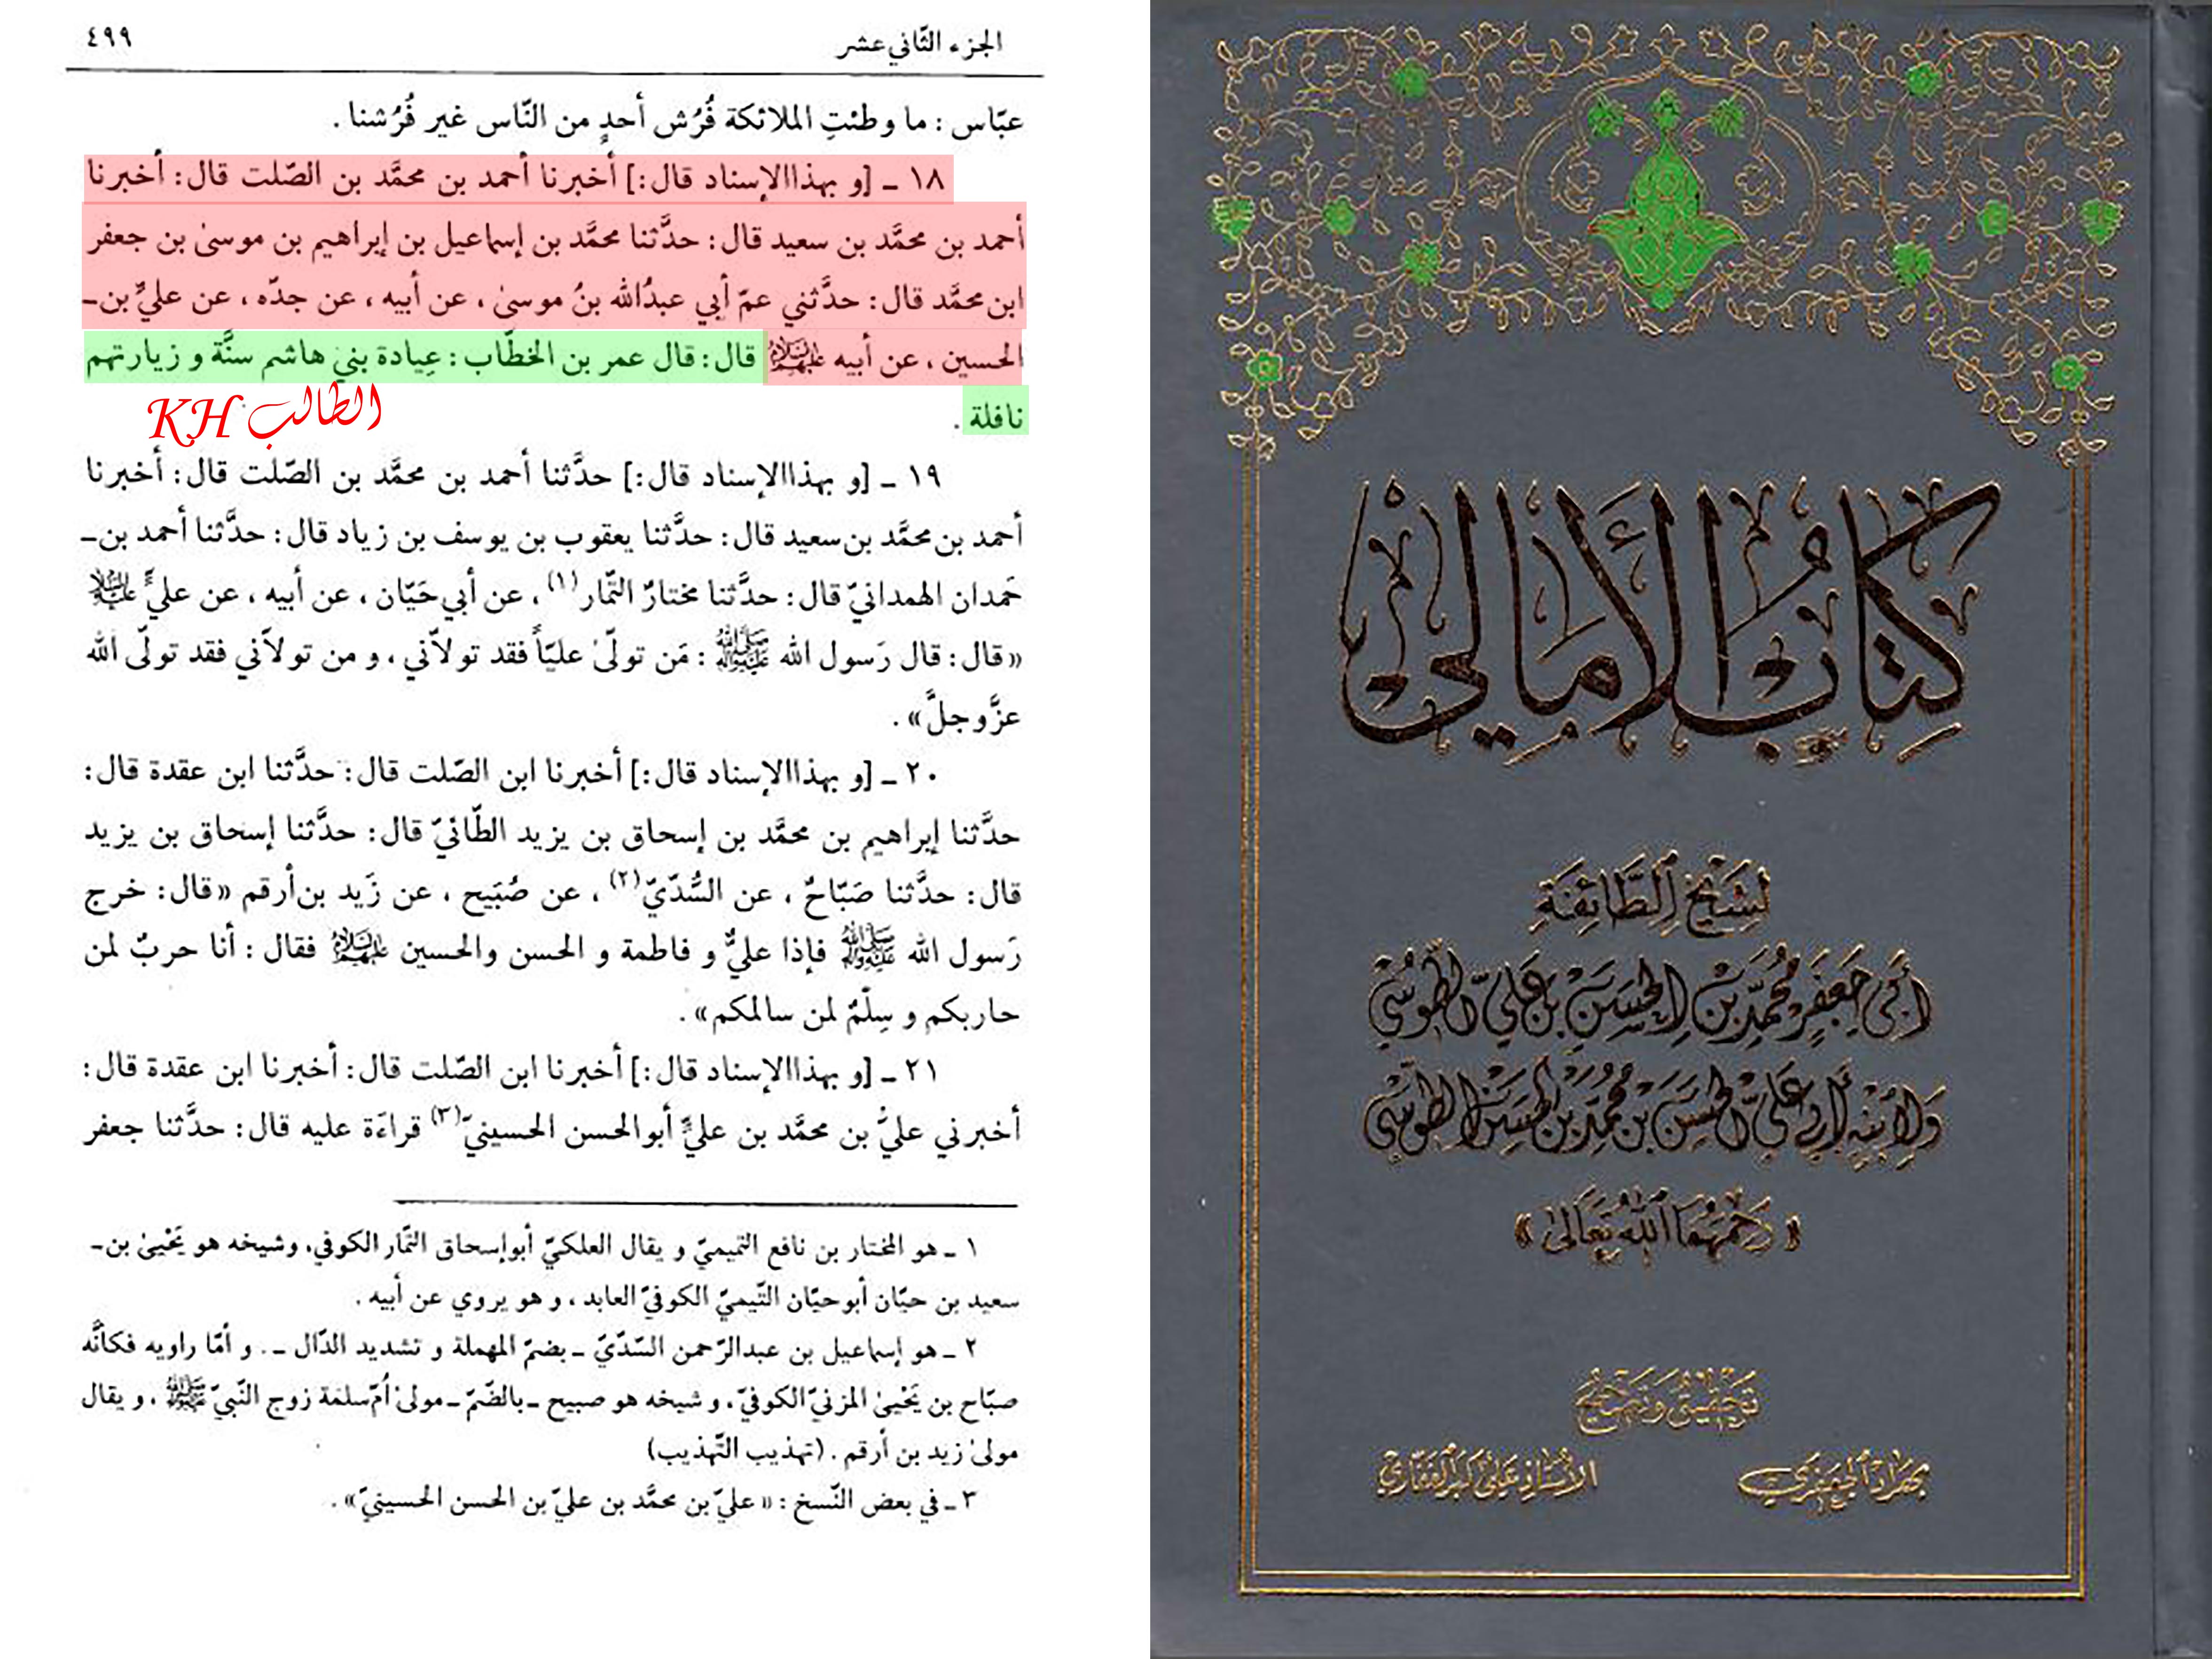 الجزء الثّاني عشر
٤٩٩
عبّاس : ما وطئتِ الملائكة فُرُش أحدٍ من النّاس غير فُرُشنا .
١٨ ـ [و بهذا الإسناد قال :] أخبرنا أحمد بن محمَّد بن الصّلت قال : أخبرنا
أحمد بن محمَّد بن سعيد قال : حدَّثنا محمَّد بن إسماعيل بن إبراهيم بن موسىٰ بن جعفر
ابن محمَّد قال : حدَّثني عمّ أبي عبدُالله بنُ موسىٰ ، عن أبيه ، عن جدّه ، عن عليِّ بن ـ
الحسين ، عن أبيه عليهم السلام قال : قال عمر بن الخطّاب : عِيادة بني هاشم سنَّة و زيارتهم
نافلة .
الطالب KH
١٩ ـ [و بهذا الإسناد قال :] حدَّثنا أحمد بن محمَّد بن الصّلت قال : أخبرنا
أحمد بن محمَّد بن سعيد قال : حدَّثنا يعقوب بن يوسف بن زياد قال : حدَّثنا أحمد بن ـ
حَمدان الهمدانيّ قال : حدَّثنا مختارٌ التّمار(١) ، عن أبي حَيّان ، عن أبيه ، عن عليٍّ عليه السلام
«قال : قال رَسول الله صلى الله عليه وآله : مَن تولّىٰ عليّاً فقد تولاّني ، و من تولاّني فقد تولّى الله
عزَّوجلَّ» .
٢٠ ـ [و بهذا الإسناد قال :] أخبرنا ابن الصّلت قال : حدَّثنا ابن عقدة قال :
حدَّثنا إبراهيم بن محمَّد بن إسحاق بن يزيد الطّائيّ قال : حدَّثنا إسحاق بن يزيد
قال : حدَّثنا صَبّاحٌ ، عن السُّدّيّ(٢) ، عن صُبَيح ، عن زَيد بن أرقم «قال : خرج
رَسول الله صلى الله عليه وآله فإذا عليٌّ و فاطمة و الحسن والحسين عليهم السلام فقال : أنا حربٌ لمن
حاربكم و سِلّمٌ لمن سالمكم» .
٢١ ـ [و بهذا الإسناد قال :] أخبرنا ابن الصّلت قال : أخبرنا ابن عقدة قال :
أخبرني عليُّ بن محمَّد بن عليٍّ أبوالحسن الحسينيّ(٣) قراءَة عليه قال : حدَّثنا جعفر
١ ـ هو المختار بن نافع التميميّ و يقال العلكيّ أبوإسحاق التّمار الكوفي، وشيخه هو يَحْيىٰ بن ـ
سعيد بن حيّان أبوحيّان التّيميّ الكوفيّ العابد ، و هو يروي عن أبيه .
٢ ـ هو إسماعيل بن عبدالرّحمن السّدّيّ ـ بضمّ المهملة و تشديد الدّال ـ . و أمّا راويه فكأنَّه
صبّاح بن يَحْيىٰ المزنيّ الكوفيّ ، و شيخه هو صبيح ـ بالضّمّ ـ مولىٰ أُمّ سلمة زوج النّبيّ صلى الله عليه وآله ، و يقال
مولىٰ زيد بن أرقم . (تهذيب التّهذيب)
٣ ـ في بعض النّسخ : «عليّ بن محمَّد بن عليّ بن الحسن الحسينيّ» .
كتاب الأمالي
لشيخ الطائفة
أبي جعفر محمد بن الحسن بن علي الطوسي
ولابنه أبي علي الحسن بن محمد بن الحسن الطوسي
«رحمهما الله تعالى»
تحقيق وتصحيح
بهراد الجعفري
الأستاذ علي أكبر الغفاري